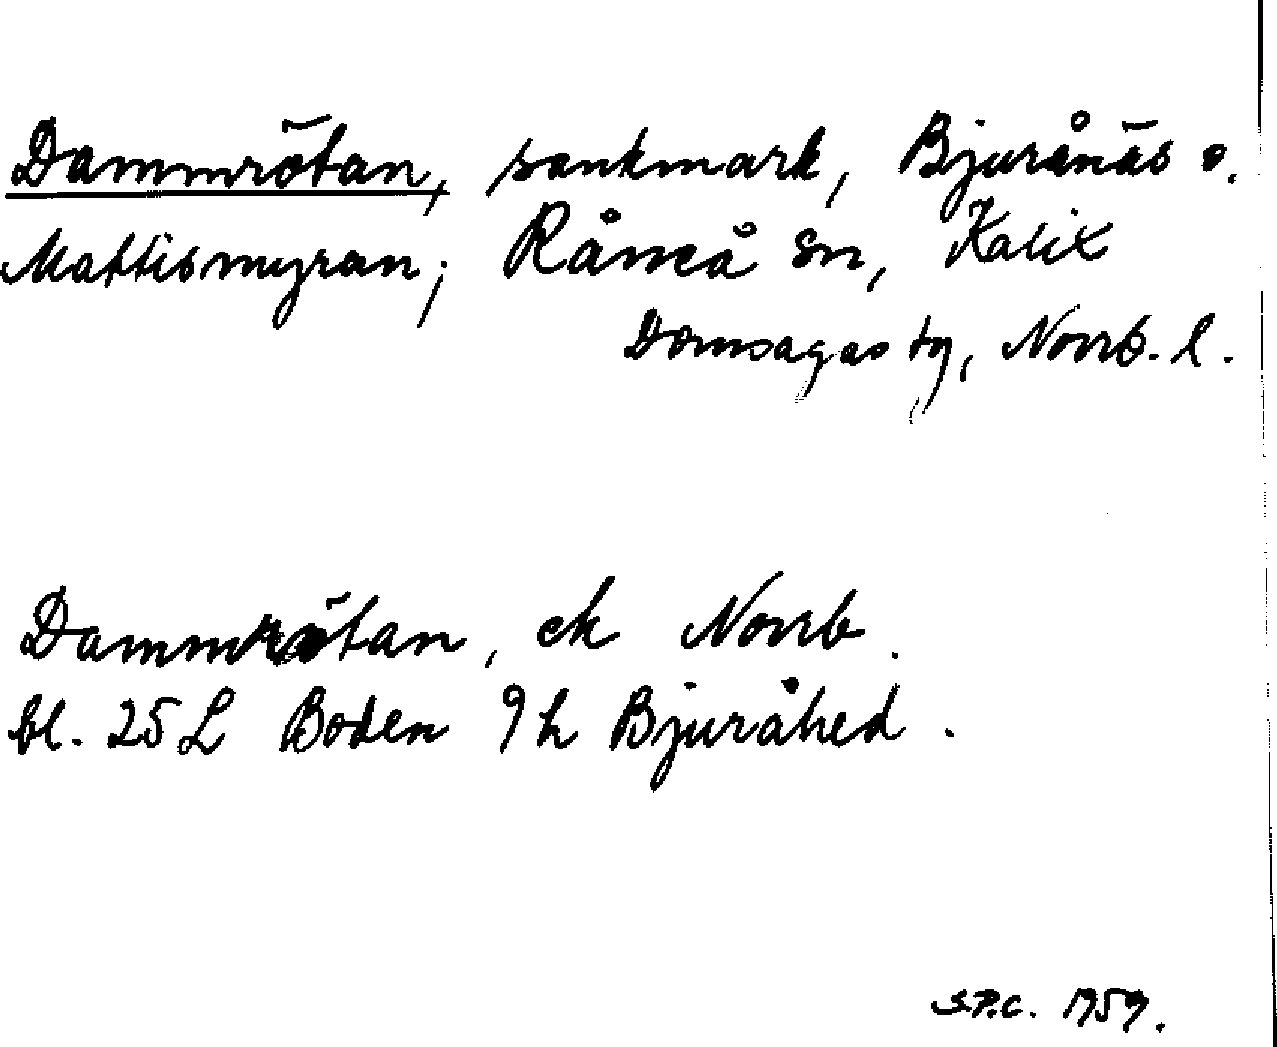 Dammrötan, sankmark, Bjurånäs o.
Mattismyran; Råneå sn, Kalix
Domsagas tg, Norrb. l.
Dammrötan, ek Norrb.
bl. 25 L Boden 9 h Bjuråhed.
S.P.C. 1959.